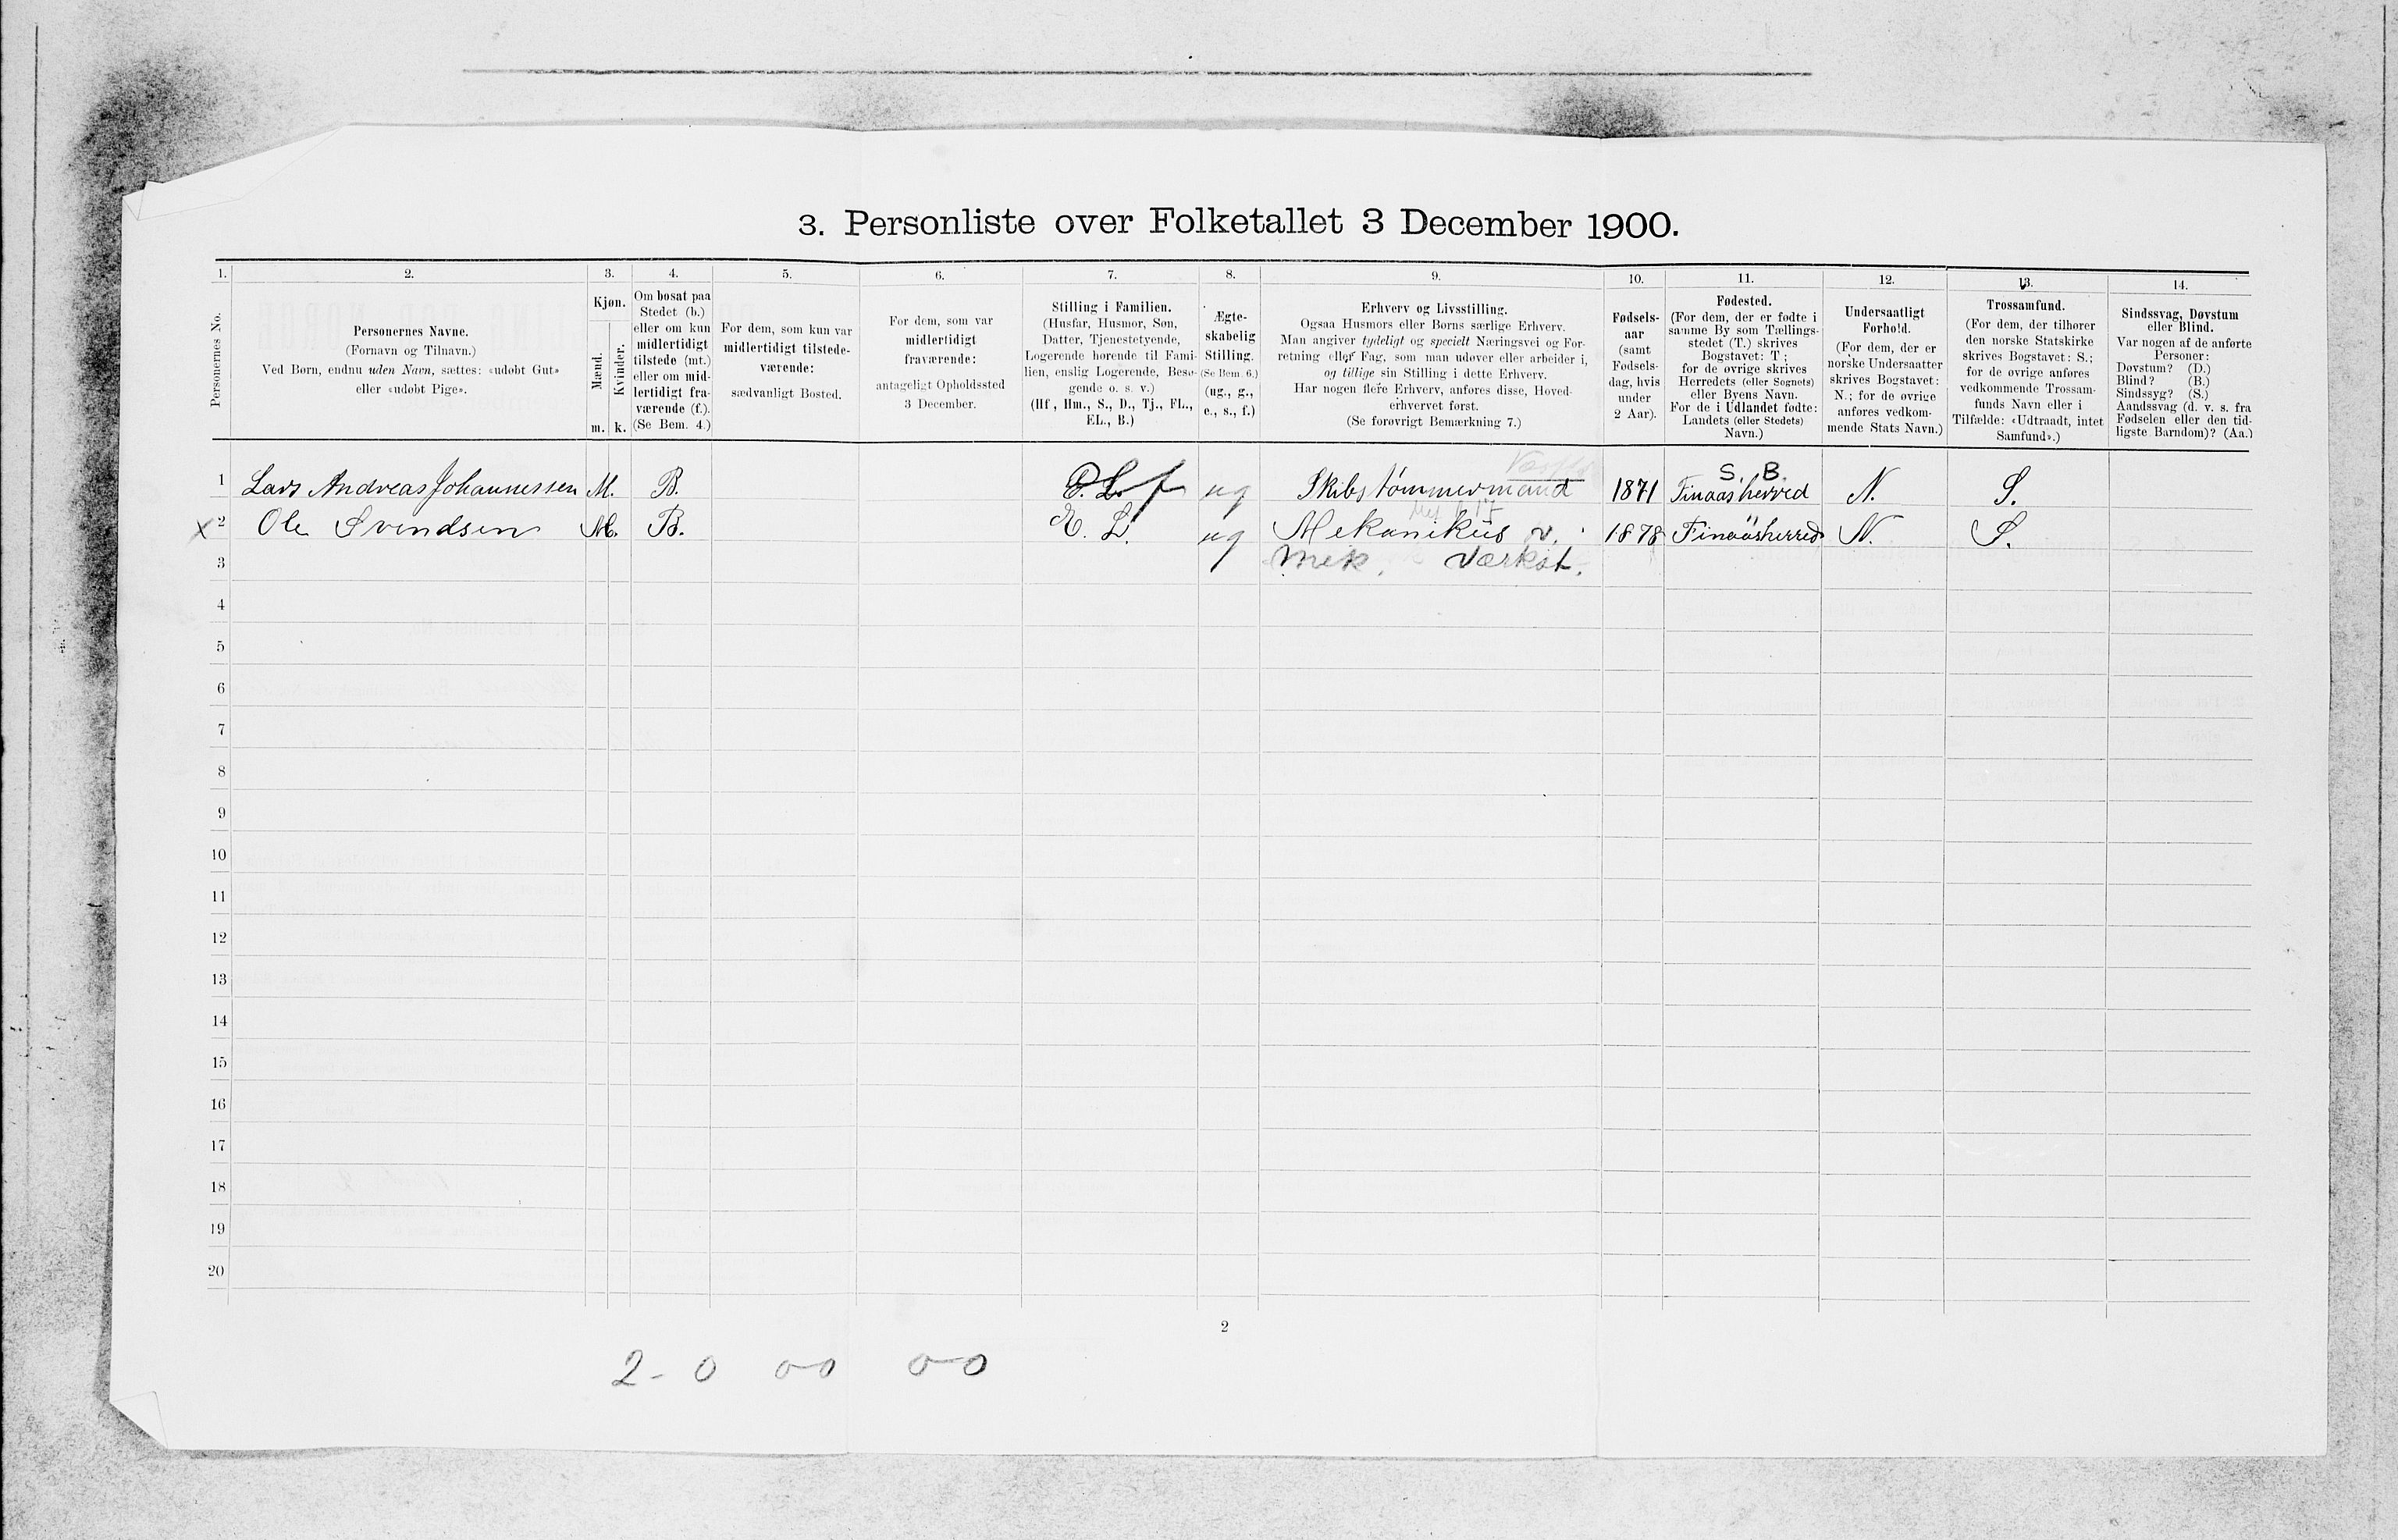 3. Personliste over Folketallet 3 December 1900.
1. 2. 3. 4. 5. 6. 7. 8. 9. 10. 11. 12. 13. 14.
Personernes No.
Personernes Navne.
(Fornavn og Tilnavn.)
Ved Børn, endnu uden Navn, sættes: «udøbt Gut»
eller «udøbt Pige».
Kjøn.
Mænd.
Kvinder.
m. k.
Om bosat paa
Stedet (b.)
eller om kun
midlertidigt
tilstede (mt.)
eller om mid-
lertidigt fra-
værende (f.).
(Se Bem. 4.)
For dem, som kun var
midlertidigt tilstede-
værende:
sædvanligt Bosted.
For dem, som var
midlertidigt
fraværende:
antageligt Opholdssted
3 December.
Stilling i Familien.
(Husfar, Husmor, Søn,
Datter, Tjenestetyende,
Logerende hørende til Fami-
lien, enslig Logerende, Besø-
gende o. s. v.)
(Hf, Hm., S., D., Tj., FL.,
EL., B.)
Ægte-
skabelig
Stilling.
(Se Bem. 6.)
(ug., g.,
e., s., f.)
Erhverv og Livsstilling.
Ogsaa Husmors eller Børns særlige Erhverv.
Man angiver tydeligt og specielt Næringsvei og For-
retning eller Fag, som man udøver eller arbeider i,
og tillige sin Stilling i dette Erhverv.
Har nogen flere Erhverv, anføres disse, Hoved-
erhvervet først.
(Se forøvrigt Bemærkning 7.)
Fødsels-
aar
(samt
Fødsels-
dag, hvis
under
2 Aar).
Fødested.
(For dem, der er fødte i
samme By som Tællings-
stedet (T.) skrives
Bogstavet: T;
for de øvrige skrives
Herredets (eller Sognets)
eller Byens Navn.
For de i Udlandet fødte:
Landets (eller Stedets)
Navn.)
Undersaatligt
Forhold.
(For dem, der er
norske Undersaatter
skrives Bogstavet:
N.; for de øvrige
anføres vedkom-
mende Stats Navn.)
Trossamfund.
(For dem, der tilhører
den norske Statskirke
skrives Bogstavet: S.;
for de øvrige anføres
vedkommende Trossam-
funds Navn eller i
Tilfælde: «Udtraadt, intet
Samfund».)
Sindssvag, Døvstum
eller Blind.
Var nogen af de anførte
Personer:
Døvstum? (D.)
Blind? (B.)
Sindssyg? (S.)
Aandssvag (d. v. s. fra
Fødselen eller den tid-
ligste Barndom)? (Aa.)
S. B.
1 Lars Andreas Johannessen M. B. E. L. f ug Skibstømmermand 1871 Finaas herred N. S.
x 2 Ole Svendsen M. B. E. L. ug Mekanikus v. 1878 Finaasherred N. S.
3 Mek. Værkst.
4
5
6
7
8
9
10
11
12
13
14
15
16
17
18
19
20
2
2 - 0 0-0 0-0